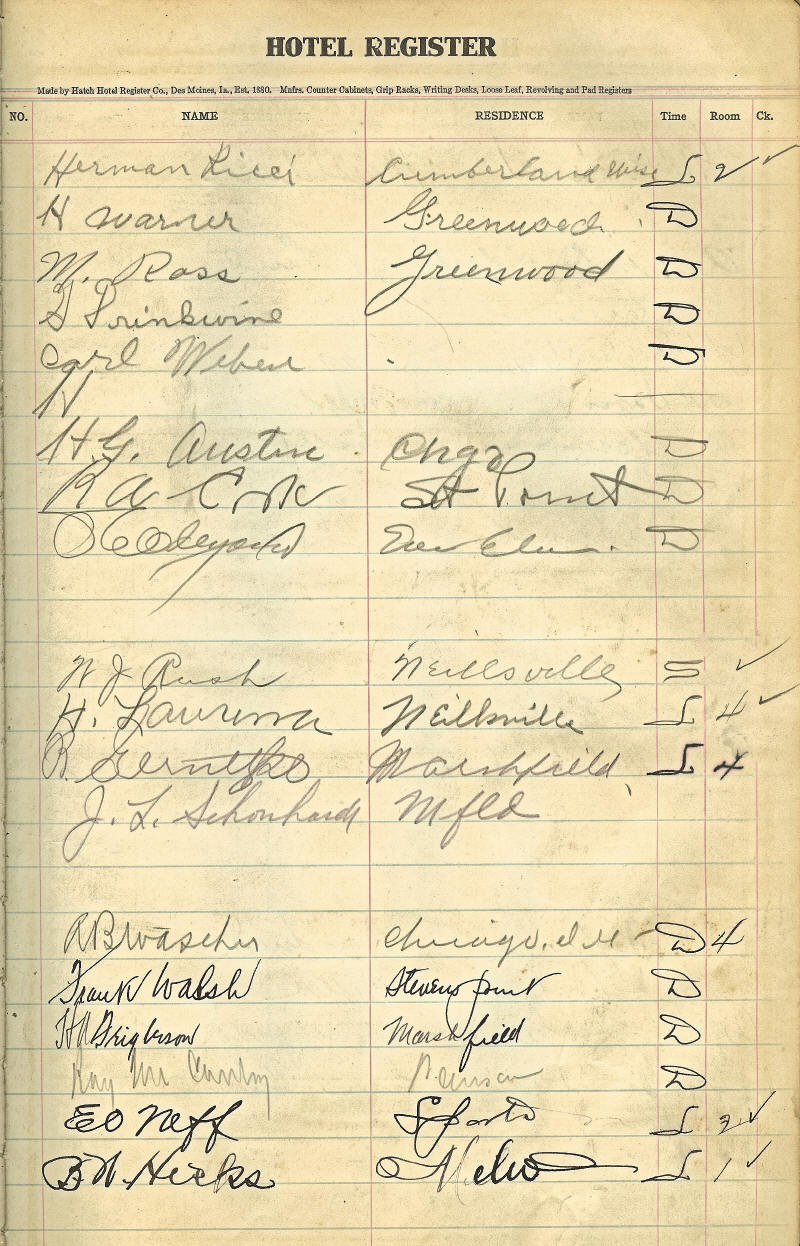 HOTEL REGISTER
Made by Hatch Hotel Register Co., Des Moines, Ia., Est. 1880. Mnfrs. Counter Cabinets, Grip Racks, Writing Desks, Loose Leaf, Revolving and Pad Registers
NO. NAME RESIDENCE Time Room Ck.
Herman Ricci Cumberland Wisc L 2 ✓
H Warner Greenwood D
M. Ross Greenwood D
Drinkwine D
Carl Weber D
H
H.G. Austin Chgo D
R A Cook St Point D
D
W J Rush Neillsville ✓
H. Neillsville L 4 ✓
R. Marshfield L 4
J. L. Schonhardt Mfld
Chicago, Ill D 4
Frank Walsh Stevens point D
Marshfield D
Ray D
EO Neff Sparta L 2 ✓
B W Hicks L 1 ✓